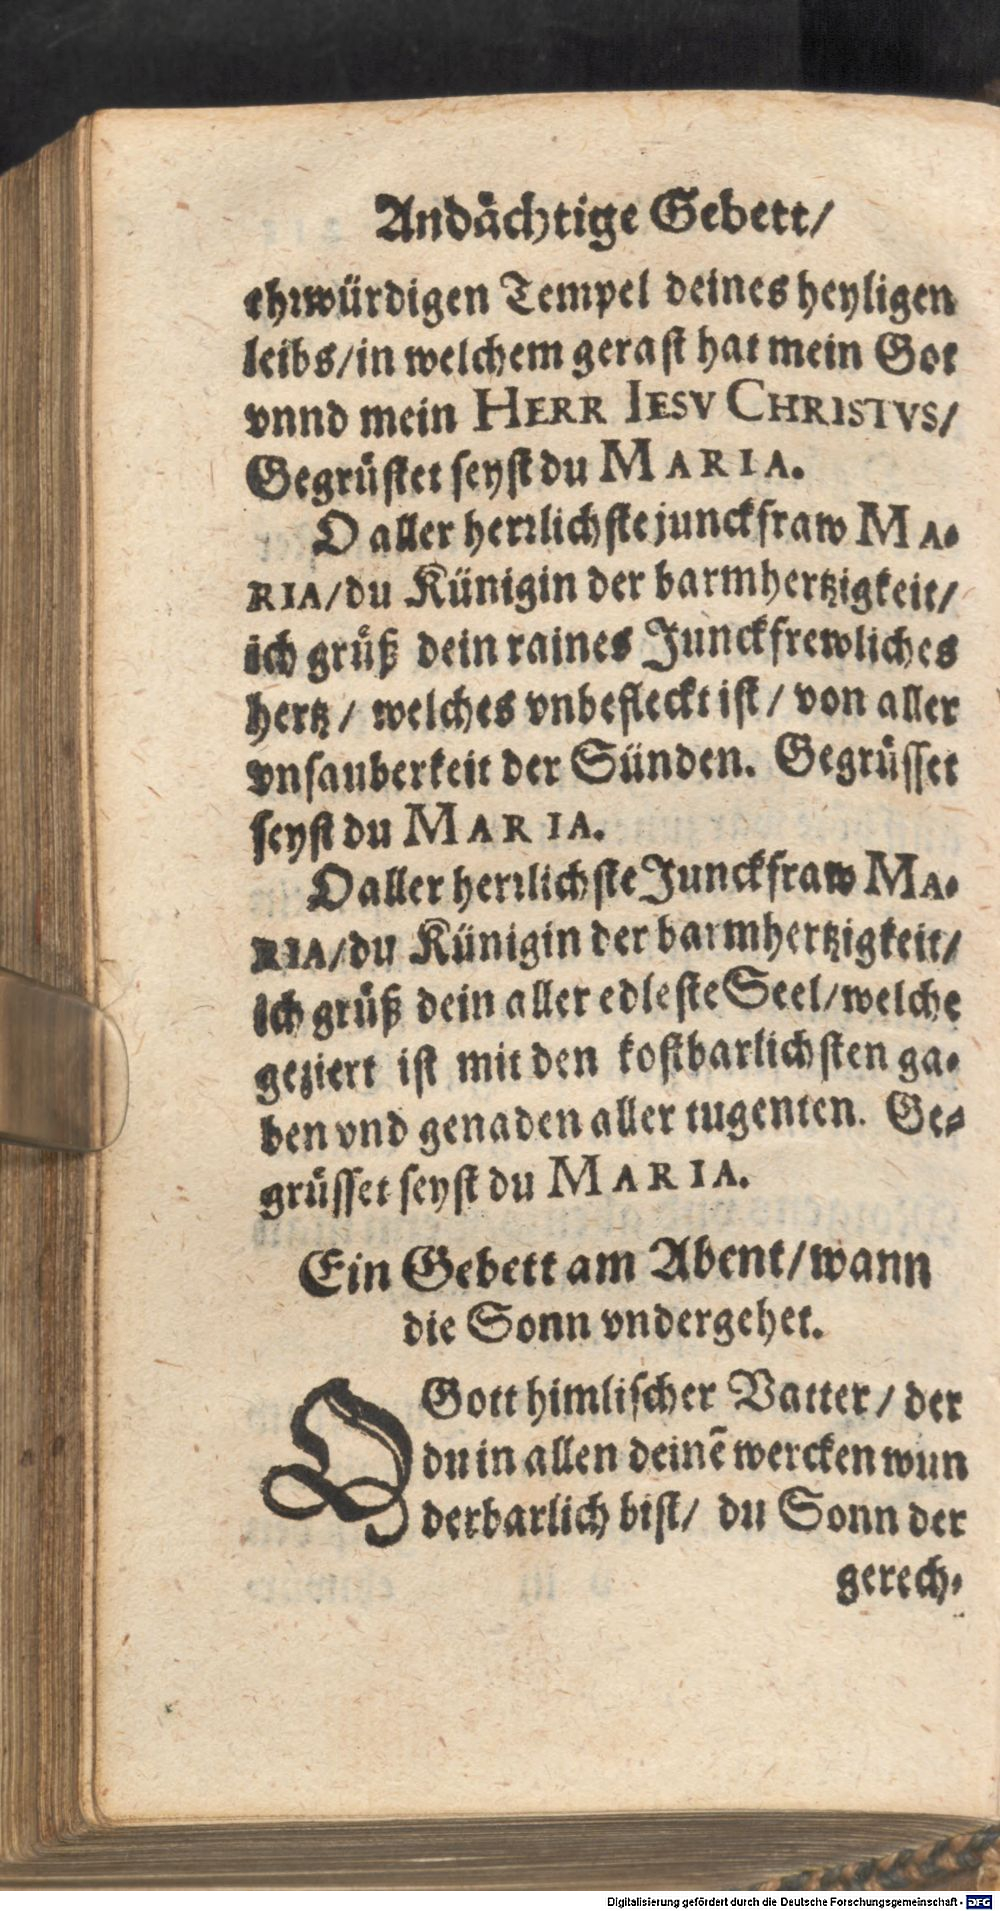 Andächtige Gebett/
ehrwürdigen Tempel deines heyligen
leibs/in welchem gerast hat mein Got
vnnd mein HERR IESV CHRISTVS/
Gegrüstet seyst du MARIA.
O aller herrlichste junckfraw MA-
RIA/du Künigin der barmhertzigkeit/
ich grüß dein raines Junckfrewliches
hertz/ welches vnbefleckt ist/ von aller
vnsauberkeit der Sünden. Gegrüsset
seyst du MARIA.
O aller herrlichste Junckfraw MA-
RIA/du Künigin der barmhertzigkeit/
ich grüß dein aller edleste Seel/welche
geziert ist mit den kostbarlichsten ga-
ben vnd genaden aller tugenten. Ge-
grüsset seyst du MARIA.
Ein Gebett am Abent/wann
die Sonn vndergehet.
O Gott himlischer Vatter/ der
du in allen deinẽ wercken wun
derbarlich bist/ du Sonn der
gerech-
Digitalisierung gefördert durch die Deutsche Forschungsgemeinschaft - DFG